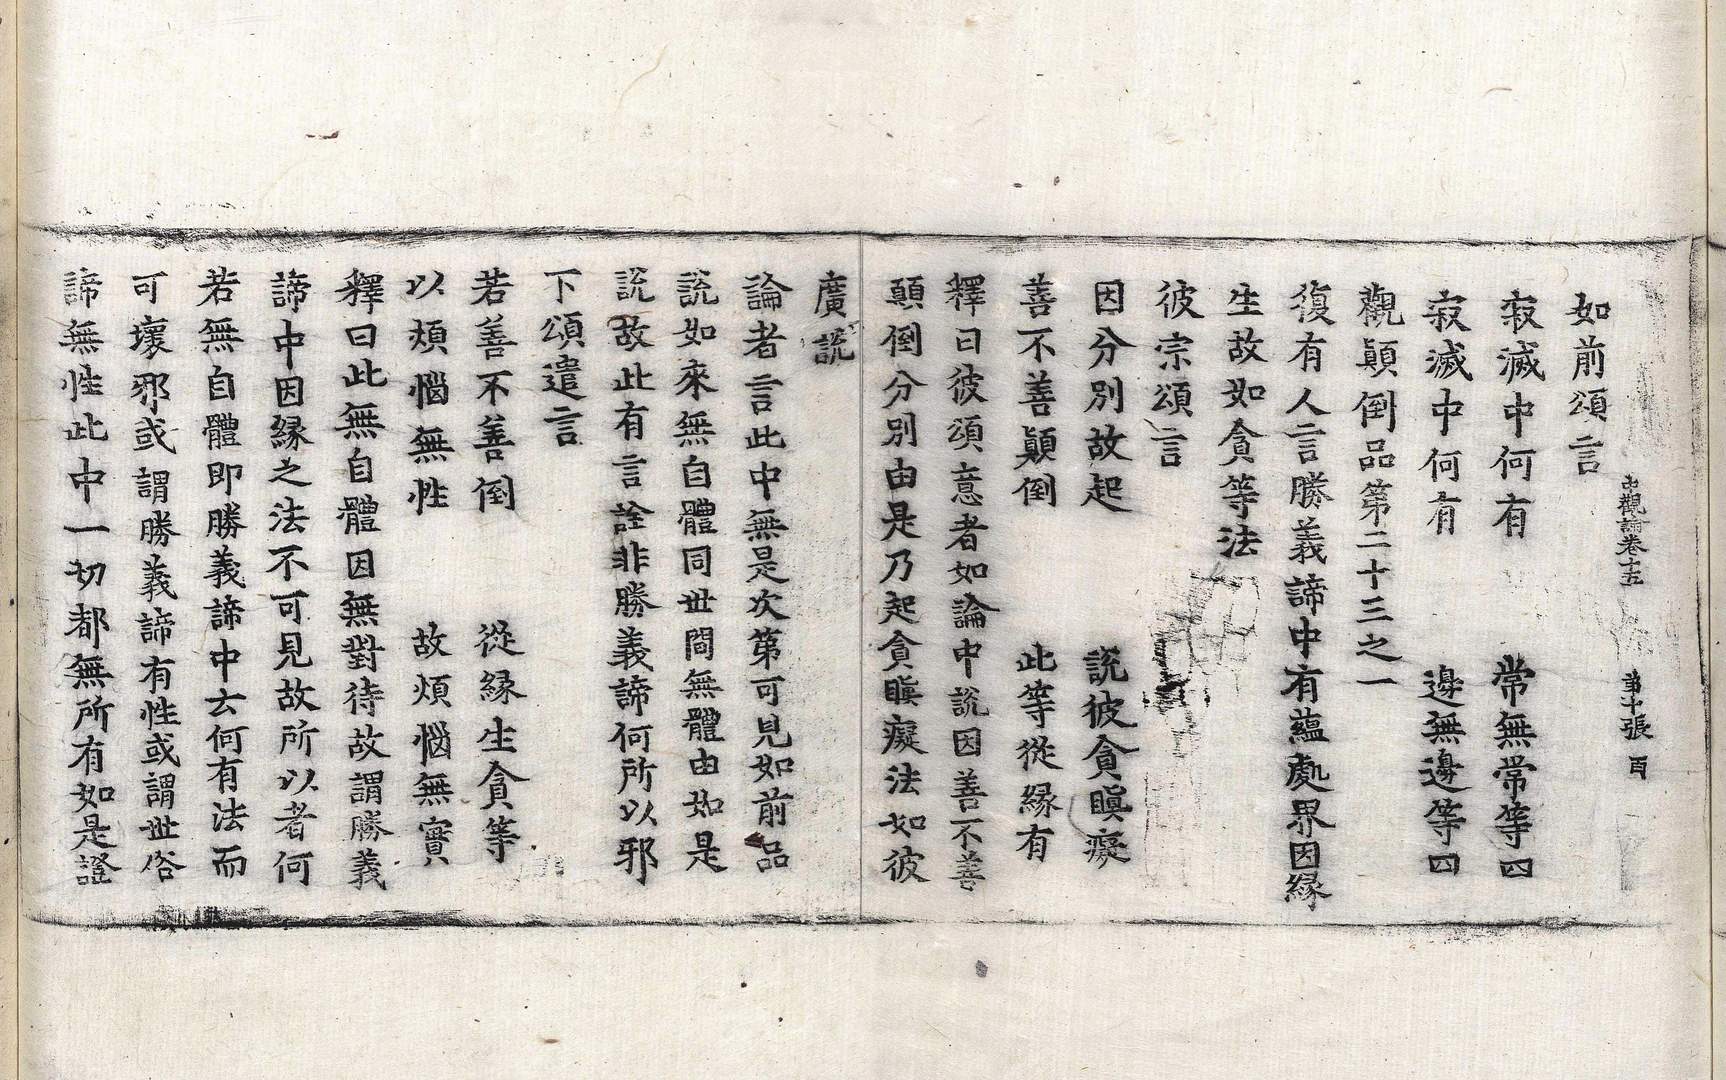 中觀論卷十五 第十張 百
如前頌言
寂滅中何有 常無常等四
寂滅中何有 邊無邊等四
觀顛倒品第二十三之一
復有人言勝義諦中有蘊處界因緣
生故如貪等法
彼宗頌言
因分別故起 說彼貪瞋癡
善不善顛倒 此等從緣有
釋曰彼頌意者如論中說因善不善
顛倒分別由是乃起貪瞋癡法如彼
廣說
論者言此中無是次第可見如前品
說如來無自體同世間無體由如是
說故此有言詮非勝義諦何所以邪
下頌遣言
若善不善倒 從緣生貪等
以煩惱無性 故煩惱無實
釋曰此無自體因無對待故謂勝義
諦中因緣之法不可見故所以者何
若無自體即勝義諦中云何有法而
可壞邪或謂勝義諦有性或謂世俗
諦無性此中一切都無所有如是證